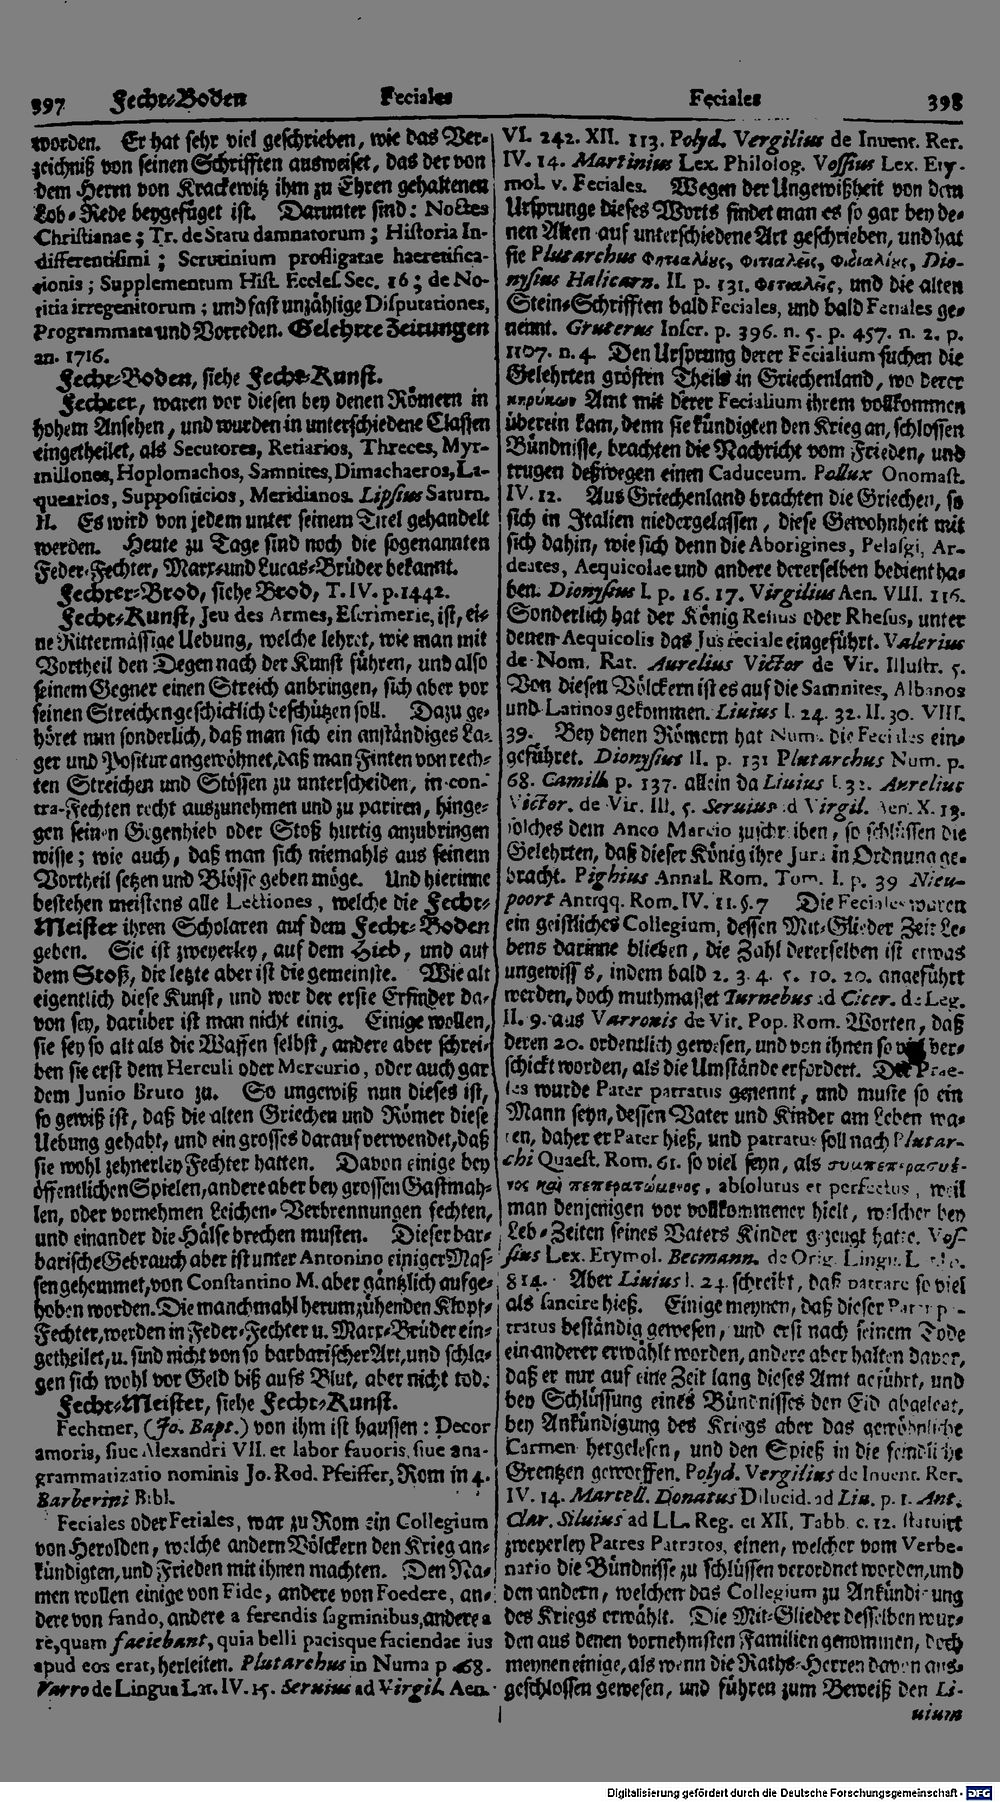 397 Fecht-Boden Feciales
Feciales 398
worden. Er hat sehr viel geschrieben, wie das Ver-
zeichniß von seinen Schrifften ausweiset, das der von
dem Herrn von Krackewitz ihm zu Ehren gehaltenen
Lob-Rede beygefüget ist. Darunter sind: Noctes
Christianae; Tr. de Statu damnatorum; Historia In-
differentismi; Scrutinium profligatae haeretifica-
tionis; Supplementum Hist. Eccles. Sec. 16; de No-
titia irregenitorum; und fast unzählige Disputationes,
Programmata und Vorreden. Gelehrte Zeitungen
an. 1716.
Fecht-Boden, siehe Fecht-Kunst.
Fechter, waren vor diesen bey denen Römern in
hohem Ansehen, und wurden in unterschiedene Classen
eingetheilet, als Secutores, Retiarios, Threces, Myr-
millones, Hoplomachos, Samnites, Dimachaeros, La-
quearios, Supposititios, Meridianos. Lipsius Saturn.
II. Es wird von jedem unter seinem Titel gehandelt
werden. Heute zu Tage sind noch die sogenannten
Feder-Fechter, Marx- und Lucas-Brüder bekannt.
Fechter-Brod, siehe Brod, T. IV. p. 1442.
Fecht-Kunst, Jeu des Armes, Escrimerie, ist, ei-
ne Rittermässige Uebung, welche lehret, wie man mit
Vortheil den Degen nach der Kunst führen, und also
seinem Gegner einen Streich anbringen, sich aber vor
seinen Streichen geschicklich beschützen soll. Dazu ge-
höret nun sonderlich, daß man sich ein anständiges La-
ger und Positur angewöhnet, daß man Finten von rech-
ten Streichen und Stössen zu unterscheiden, in con-
tra-Fechten recht auszunehmen und zu pariren, hinge-
gen seinen Gegenhieb oder Stoß hurtig anzubringen
wisse; wie auch, daß man sich niemahls aus seinem
Vortheil setzen und Blösse geben möge. Und hierinne
bestehen meistens alle Lectiones, welche die Fecht-
Meister ihren Scholaren auf dem Fecht-Boden
geben. Sie ist zweyerley, auf dem Hieb, und auf
dem Stoß, die letzte aber ist die gemeinste. Wie alt
eigentlich diese Kunst, und wer der erste Erfinder da-
von sey, darüber ist man nicht einig. Einige wollen,
sie sey so alt als die Waffen selbst, andere aber schrei-
ben sie erst dem Herculi oder Mercurio, oder auch gar
dem Junio Bruto zu. So ungewiß nun dieses ist,
so gewiß ist, daß die alten Griechen und Römer diese
Uebung gehabt, und ein grosses darauf verwendet, daß
sie wohl zehnerley Fechter hatten. Davon einige bey
öffentlichen Spielen, andere aber bey grossen Gastmah-
len, oder vornehmen Leichen-Verbrennungen fechten,
und einander die Hälse brechen musten. Dieser bar-
barische Gebrauch aber ist unter Antonino einiger Mas-
sen gehemmet, von Constantino M. aber gäntzlich aufge-
hoben worden. Die manchmahl herum zühenden Klopf-
Fechter, werden in Feder-Fechter u. Marx-Brüder ein-
getheilet, u. sind nicht von so barbarischer Art, und schla-
gen sich wohl vor Geld biß aufs Blut, aber nicht tod.
Fecht-Meister, siehe Fecht-Kunst.
Fechtner, (Jo. Bapt.) von ihm ist haussen: Decor
amoris, siue Alexandri VII. et labor fauoris, siue ana-
grammatizatio nominis Jo. Rod. Pfeiffer, Rom in 4.
Barberini Bibl.
Feciales oder Fetiales, war zu Rom ein Collegium
von Herolden, welche andern Völckern den Krieg an-
kündigten, und Frieden mit ihnen machten. Den Na-
men wollen einige von Fide, andere von Foedere, an-
dere von fando, andere a ferendis sagminibus, andere a
re, quam faciebant, quia belli pacisque faciendae ius
apud eos erat, herleiten. Plutarchus in Numa p 68.
Varro de Lingua Lat. IV. 15. Seruius ad Virgil. Aen.
VI. 242. XII. 113. Polyd. Vergilius de Inuent. Rer.
IV. 14. Martinius Lex. Philolog. Vossius Lex. Ety-
mol. v. Feciales. Wegen der Ungewißheit von dem
Ursprunge dieses Worts findet man es so gar bey de-
nen Alten auf unterschiedene Art geschrieben, und hat
sie Plutarchus Φητιαλίες, Φιτιαλεῖς, Φικιαλίες, Dio-
nysius Halicarn. II. p. 131. Φετιαλεῖς, und die alten
Stein-Schrifften bald Feciales, und bald Fetiales ge-
nennt. Gruterus Inscr. p. 396. n. 5. p. 457. n. 2. p.
1107. n. 4. Den Ursprung derer Fecialium suchen die
Gelehrten grösten Theils in Griechenland, wo derer
κηρύκων Amt mit derer Fecialium ihrem vollkommen
überein kam, denn sie kündigten den Krieg an, schlossen
Bündnisse, brachten die Nachricht vom Frieden, und
trugen deßwegen einen Caduceum. Pollux Onomast.
IV. 12. Aus Griechenland brachten die Griechen, so
sich in Italien niedergelassen, diese Gewohnheit mit
sich dahin, wie sich denn die Aborigines, Pelasgi, Ar-
deates, Aequicolae und andere dererselben bedient ha-
ben. Dionysius I. p. 16. 17. Virgilius Aen. VIII. 116.
Sonderlich hat der König Retius oder Rhesus, unter
denen Aequicolis das Jus feciale eingeführt. Valerius
de Nom. Rat. Aurelius Victor de Vir. Illustr. 5.
Von diesen Völckern ist es auf die Samnites, Albanos
und Latinos gekommen. Liuius I. 24. 32. II. 30. VIII.
39. Bey denen Römern hat Numa die Feciales ein-
geführet. Dionysius II. p. 131 Plutarchus Num. p.
68. Camill. p. 137. allein da Liuius I. 32. Aurelius
Victor. de Vir. Ill. 5. Seruius ad Virgil. Aen. X. 13.
solches dem Anco Marcio zuschreiben, so schlüssen die
Gelehrten, daß dieser König ihre Jura in Ordnung ge-
bracht. Pighius Annal. Rom. Tom. I. p. 39 Nieu-
poort Antiqq. Rom. IV. 11. §. 7 Die Feciales waren
ein geistliches Collegium, dessen Mit-Glieder Zeit Le-
bens darinne blieben, die Zahl dererselben ist etwas
ungewisses, indem bald 2. 3. 4. 5. 10. 20. angeführt
werden, doch muthmasset Turnebus ad Cicer. de Leg.
II. 9. aus Varronis de Vit. Pop. Rom. Worten, daß
deren 20. ordentlich gewesen, und von ihnen so viel ver-
schickt worden, als die Umstände erfordert. Der Prae-
ses wurde Pater patratus genennt, und muste so ein
Mann seyn, dessen Vater und Kinder am Leben wa-
ren, daher er Pater hieß, und patratus soll nach Plutar-
chi Quaest. Rom. 61. so viel seyn, als συμπεπερασμέ-
νος καὶ πεπερατώμενος, absolutus et perfectus, weil
man denjenigen vor vollkommener hielt, welcher bey
Leb-Zeiten seines Vaters Kinder gezeugt hatte. Vos-
sius Lex. Etymol. Becmann. de Orig. Lingu. L
814. Aber Liuius I. 24 schreibt, daß patrare so viel
als sancire hieß. Einige meynen, daß dieser Pater pa-
tratus beständig gewesen, und erst nach seinem Tode
ein anderer erwählt worden, andere aber halten davor,
daß er nur auf eine Zeit lang dieses Amt geführt, und
bey Schlüssung eines Bündnisses den Eid abgelegt,
bey Ankündigung des Kriegs aber das gewöhnliche
Carmen hergelesen, und den Spieß in die feindliche
Grentzen geworffen. Polyd. Vergilius de Inuent. Rer.
IV. 14. Martell. Donatus Dilucid. ad Liu. p. 1. Ant.
Clar. Siluius ad LL. Reg. et XII. Tabb. c. 12. statuirt
zweyerley Patres Patratos, einen, welcher vom Verbe-
natio die Bündnisse zu schlüssen verordnet worden, und
den andern, welchen das Collegium zu Ankündigung
des Kriegs erwählt. Die Mit-Glieder desselben wur-
den aus denen vornehmsten Familien genommen, doch
meynen einige, als wenn die Raths-Herren davon aus-
geschlossen gewesen, und führen zum Beweiß den Li-
uium
Digitalisierung gefördert durch die Deutsche Forschungsgemeinschaft - DFG